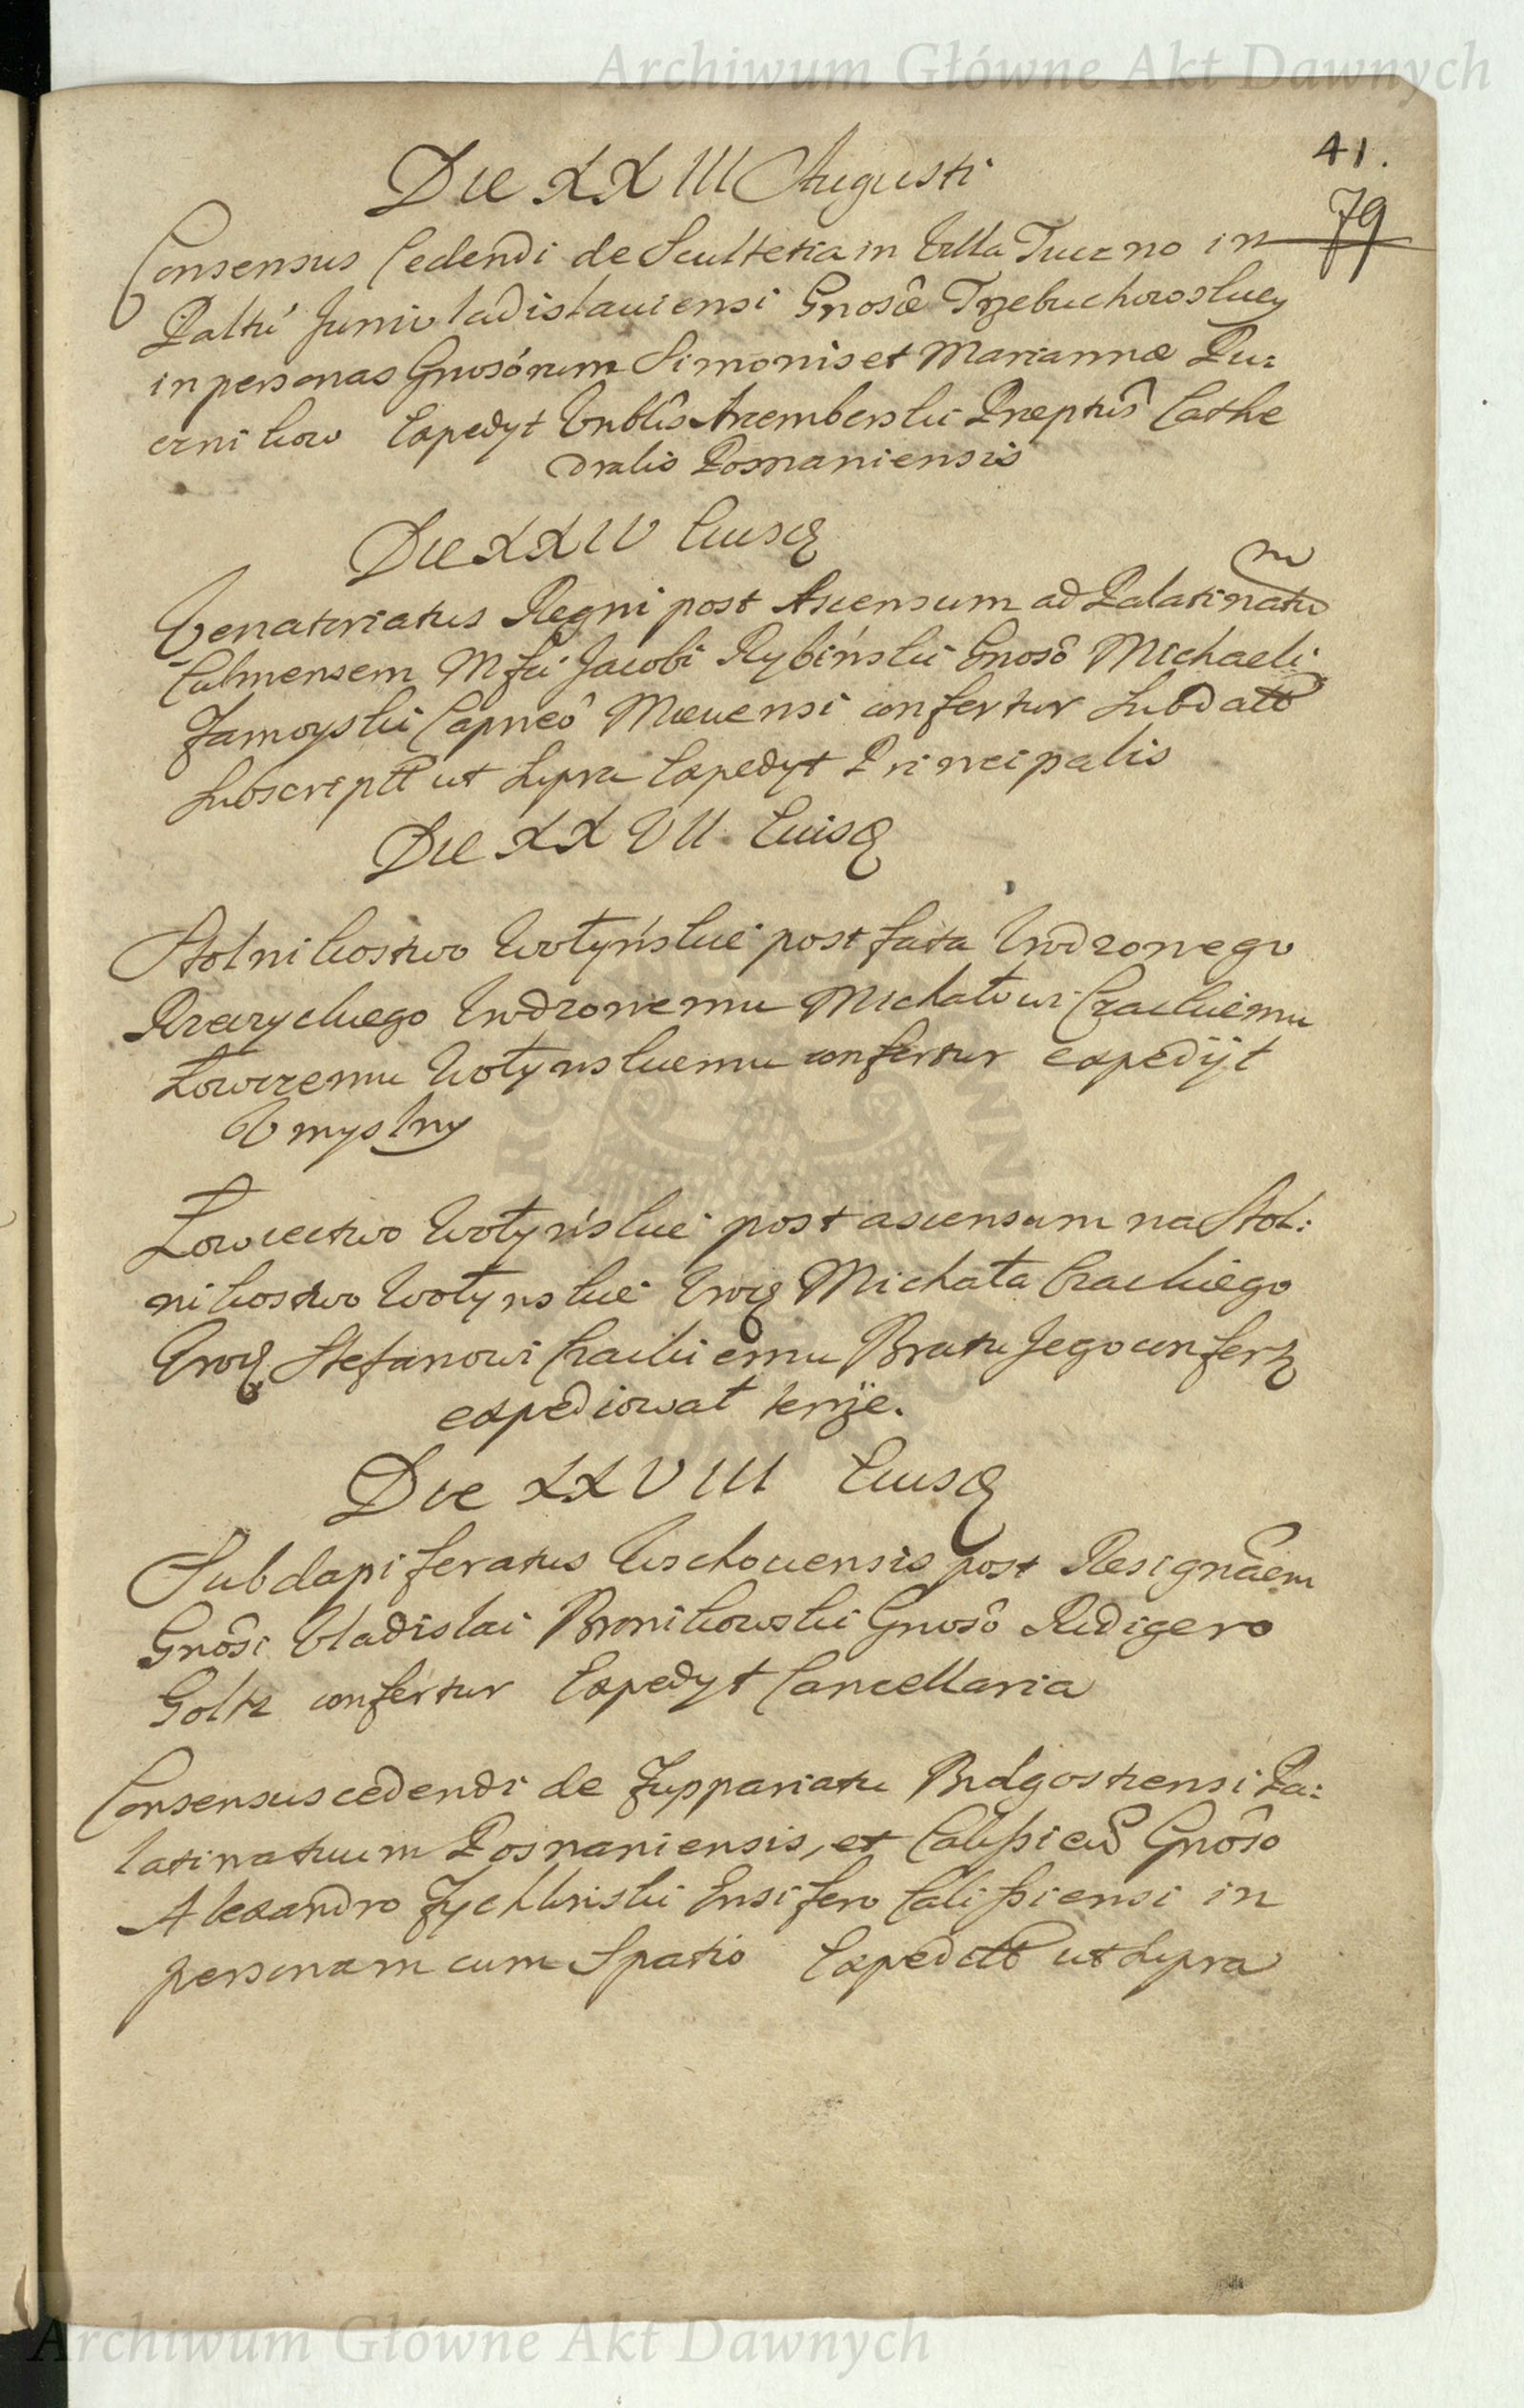 Archiwum Główne Akt Dawnych
41.
79
Die XXIII Augusti
Consensus Cedendi de Scultetia in Villa Tuczno in
Palttú Juniuladislauiensi Gnosæ Trzebuchowskiey
in personas Gnosórum Simonis et Mariannæ Pu:
cznikow Expedyt Vnblis Arzemberski Præptus Cathe
dralis Posnaniensis
Die XXIV Eiusq
Venatoriatus Regni post Ascensum ad Palatinatu
m
Culmensem Mfci Jacobi Rybiński Gnosô Michaeli
Zamoyski Capneô Mæuensi confertur sub datt
subscriptt ut supra Expedyt Principalis
Die XXVII Eiusq
Stolnikostwo Wołyńskie post fata Vrodzonego
Vrodzonemu Michałowi Czackiemu
Łowczemu Wołynskiemu confertur expedijt
Vmyslny
Łowiectwo Wołyńskie post ascensum na Stol:
nikostwo Wołynskie Vroq Michała Czackiego
Vroq Stefanowi Czackiemu Bratu Jego confert
expediował tenże.
Die XXVIII Eiusq
Subdapiferatus Wschouensis post Resignaem
Gnôsi Vladislai Bronikowski Gnosô Rudigero
Goltz confertur Expedyt Cancellaria
Consensus cedendi de Zuppariatu Bydgostiensi Pa:
latinatuum Posnaniensis, et Calissien Gnôso
Alexandro Zychlinski Ensifero Calissiensi in
personam cum Spatio Expeditt ut supra
Archiwum Główne Akt Dawnych